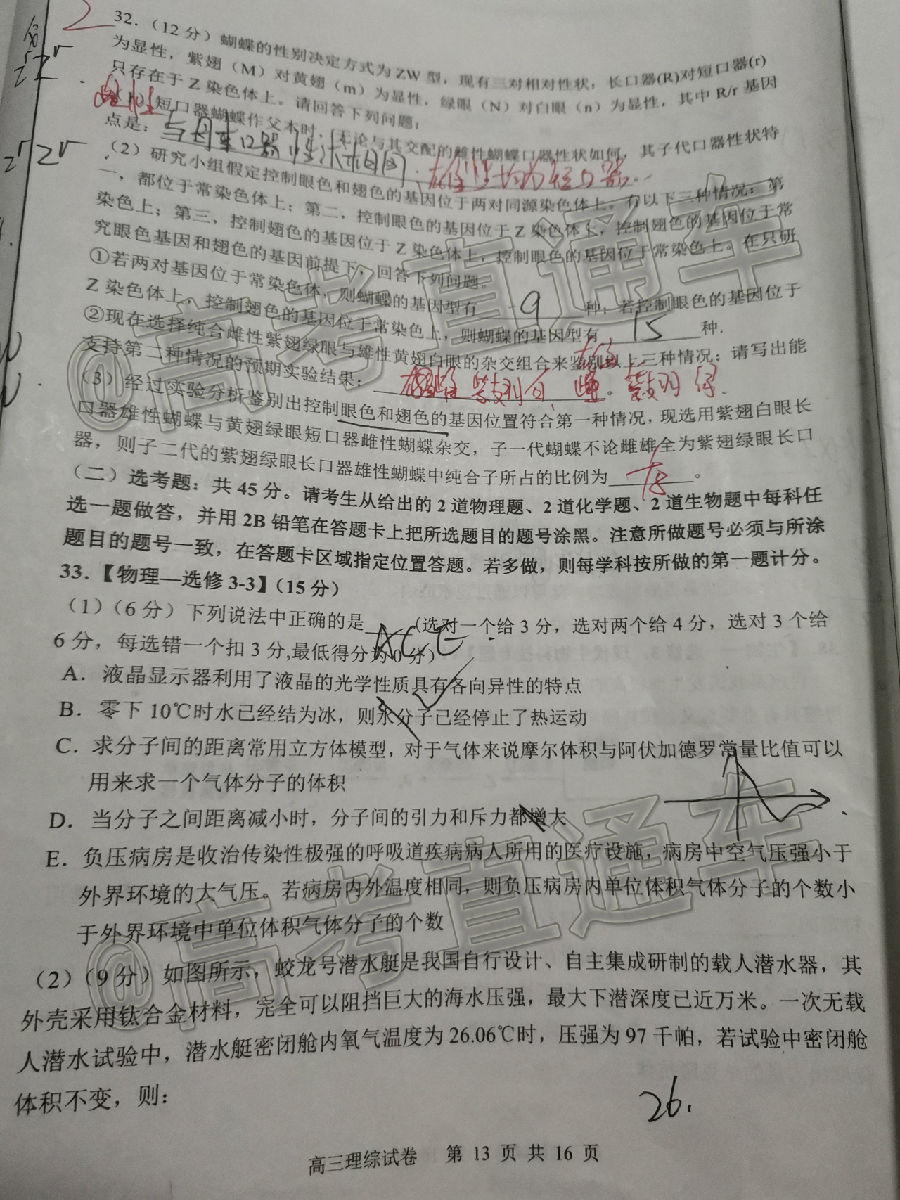 32．（12分）蝴蝶的性别决定方式为ZW型，现有三对相对性状，长口器(R)对短口器(r)
为显性，紫翅（M）对黄翅（m）为显性，绿眼（N）对白眼（n）为显性，其中R/r基因
只存在于Z染色体上。请回答下列问题：
短口器蝴蝶作父本时，无论与其交配的雌性蝴蝶口器性状如何，其子代口器性状特
点是：与母本口器性状相同 雌性均为短口器
（2）研究小组假定控制眼色和翅色的基因位于两对同源染色体上，有以下三种情况：第
一，都位于常染色体上；第二，控制眼色的基因位于Z染色体上，控制翅色的基因位于常
染色上；第三，控制翅色的基因位于Z染色体上，控制眼色的基因位于常染色上。在只研
究眼色基因和翅色的基因前提下，回答下列问题。
①若两对基因位于常染色体，则蝴蝶的基因型有 9 种，若控制眼色的基因位于
Z染色体上，控制翅色的基因位于常染色上，则蝴蝶的基因型有 15 种．
②现在选择纯合雌性紫翅绿眼与雄性黄翅白眼的杂交组合来鉴别以上三种情况；请写出能
支持第二种情况的预期实验结果： 紫翅白 紫羽绿
（3）经过实验分析鉴别出控制眼色和翅色的基因位置符合第一种情况，现选用紫翅白眼长
口器雄性蝴蝶与黄翅绿眼短口器雌性蝴蝶杂交，子一代蝴蝶不论雌雄全为紫翅绿眼长口
器，则子二代的紫翅绿眼长口器雄性蝴蝶中纯合子所占的比例为 。
（二）选考题：共45分。请考生从给出的2道物理题、2道化学题、2道生物题中每科任
选一题做答，并用2B铅笔在答题卡上把所选题目的题号涂黑。注意所做题号必须与所涂
题目的题号一致，在答题卡区域指定位置答题。若多做，则每学科按所做的第一题计分。
33．【物理—选修3-3】(15分)
（1）(6分）下列说法中正确的是 ACE (选对一个给3分，选对两个给4分，选对3个给
6分，每选错一个扣3分,最低得分为0分）
A．液晶显示器利用了液晶的光学性质具有各向异性的特点
B．零下10℃时水已经结为冰，则水分子已经停止了热运动
C．求分子间的距离常用立方体模型，对于气体来说摩尔体积与阿伏加德罗常量比值可以
用来求一个气体分子的体积
D．当分子之间距离减小时，分子间的引力和斥力都增大
E．负压病房是收治传染性极强的呼吸道疾病病人所用的医疗设施，病房中空气压强小于
外界环境的大气压。若病房内外温度相同，则负压病房内单位体积气体分子的个数小
于外界环境中单位体积气体分子的个数
（2）（9分）如图所示，蛟龙号潜水艇是我国自行设计、自主集成研制的载人潜水器，其
外壳采用钛合金材料，完全可以阻挡巨大的海水压强，最大下潜深度已近万米。一次无载
人潜水试验中，潜水艇密闭舱内氧气温度为26.06℃时，压强为97千帕，若试验中密闭舱
体积不变，则：
26.
高三理综试卷 第13页共16页
@高考直通车
@高考直通车